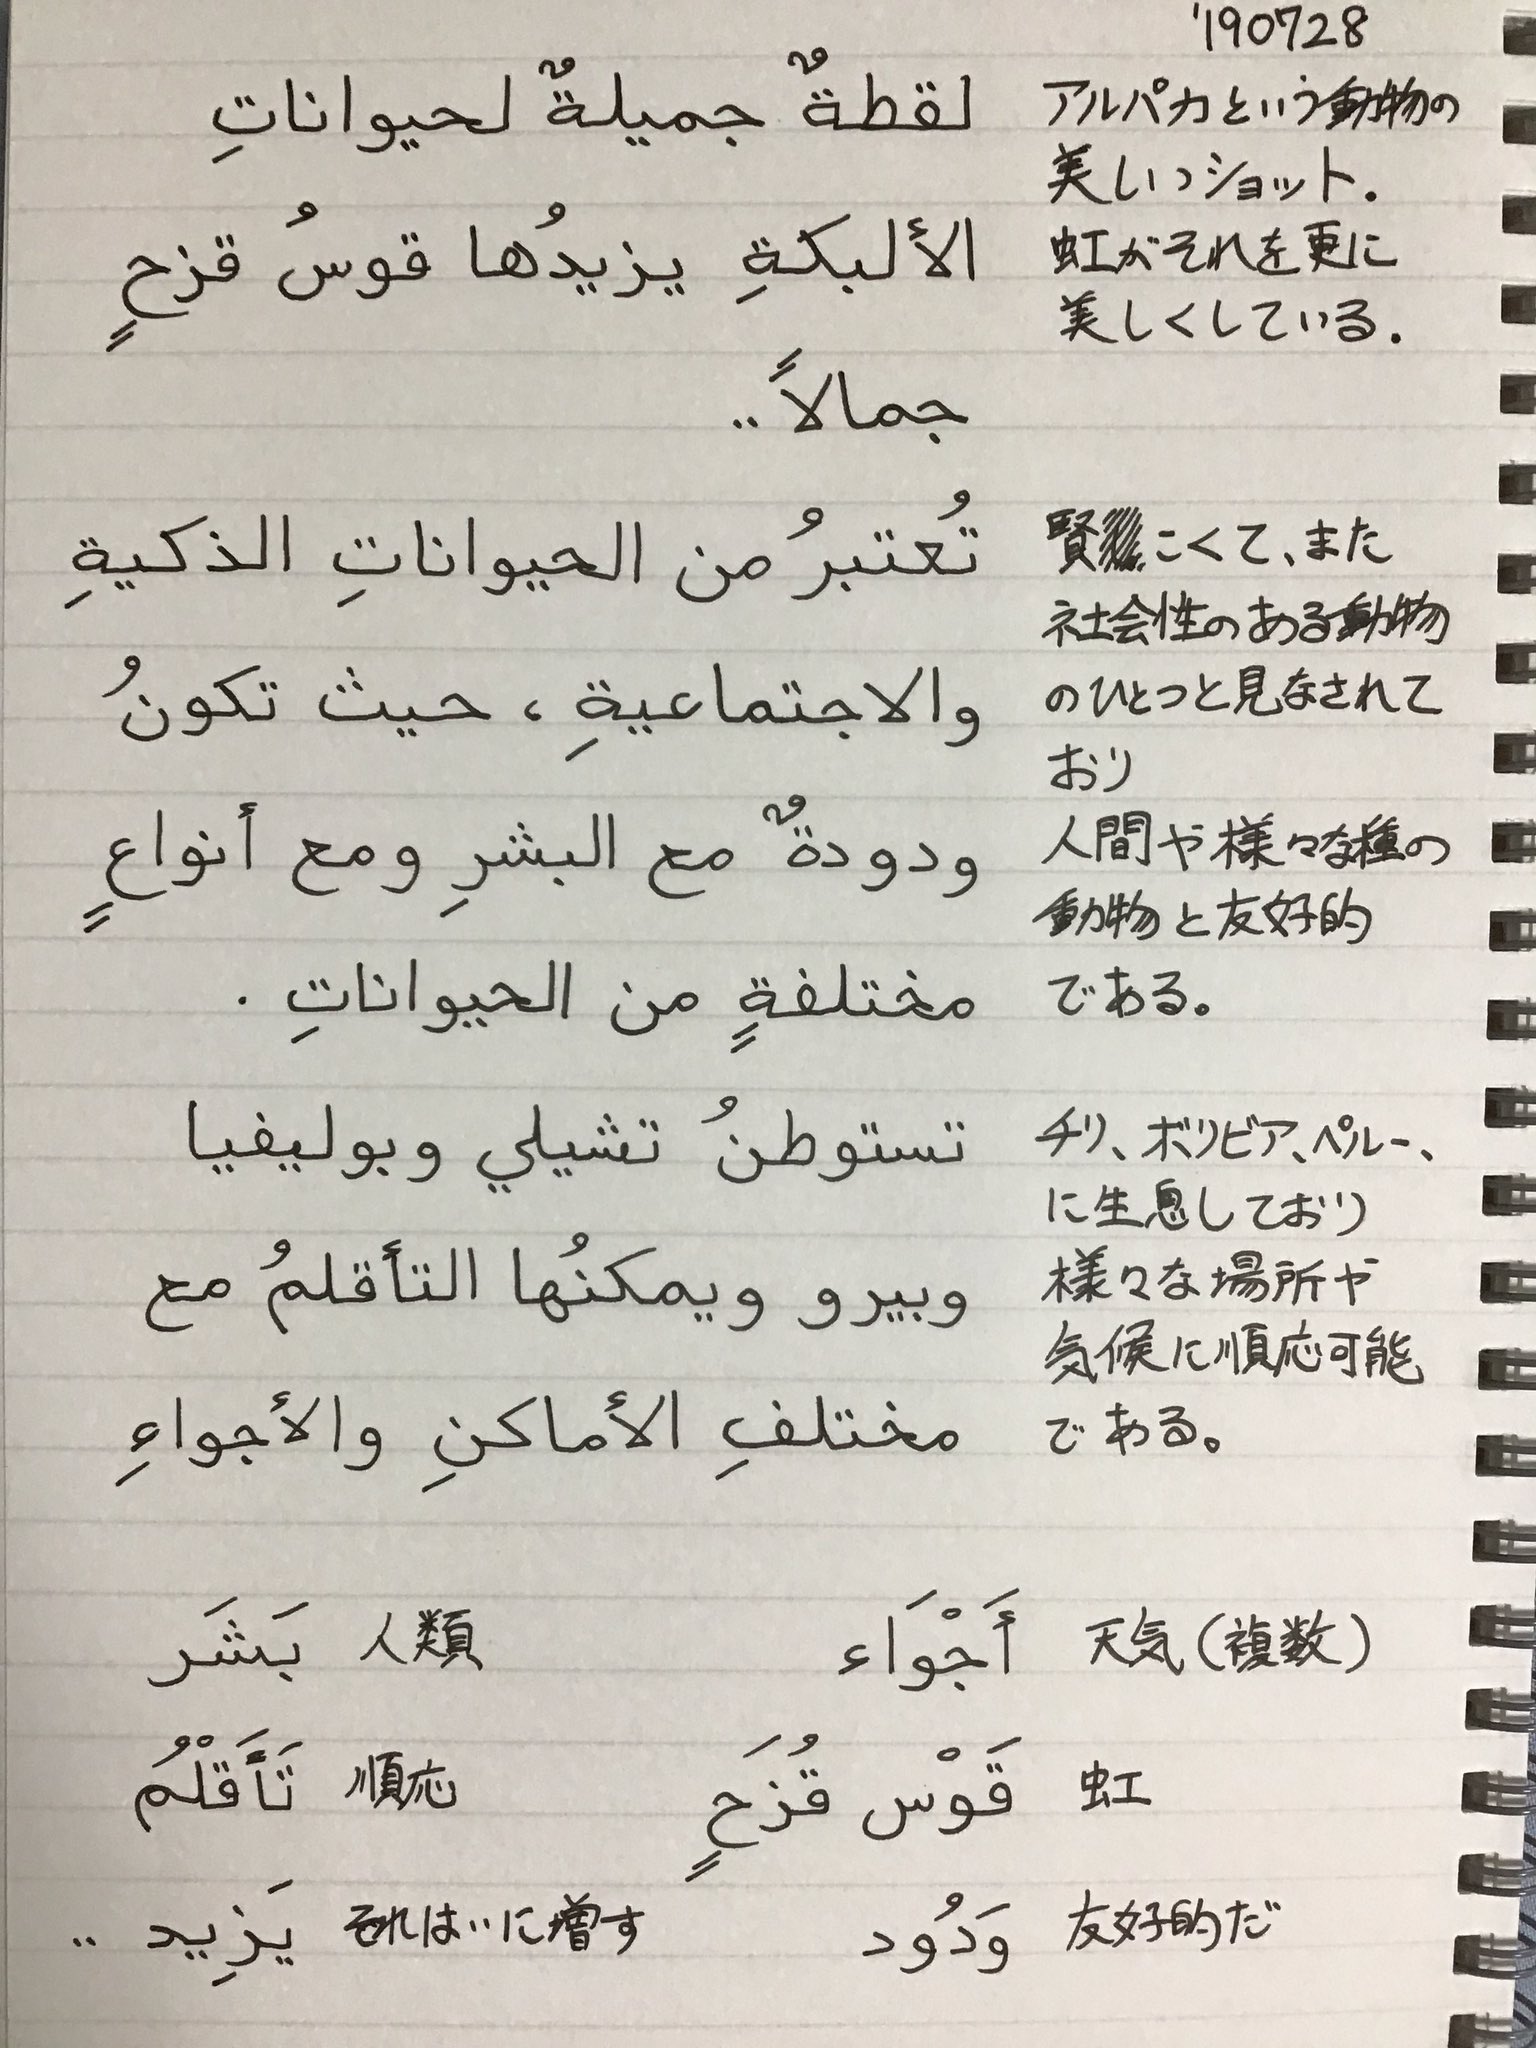 '190728
لقطةٌ جميلةٌ لحيواناتِ
الألبكةِ يزيدُها قوسُ قزحٍ
جمالاً..
アルパカという動物の
美しいショット.
虹がそれを更に
美しくしている.
تُعتبرُ من الحيواناتِ الذكيةِ
والاجتماعيةِ، حيث تكونُ
ودودةٌ مع البشرِ ومع أنواعٍ
مختلفةٍ من الحيواناتِ .
賢こくて、また
社会性のある動物
のひとつと見なされて
おり
人間や様々な種の
動物と友好的
である。
تستوطنُ تشيلي وبوليفيا
وبيرو ويمكنُها التأقلمُ مع
مختلفِ الأماكنِ والأجواءِ
チリ、ボリビア、ペルー、
に生息しており
様々な場所や
気候に順応可能
である。
أَجْوَاء 天気(複数)
بَشَر 人類
قَوْس قُزَحٍ 虹
تَأَقْلُم 順応
وَدُود 友好的だ
يَزِيد .. それは‥に増す